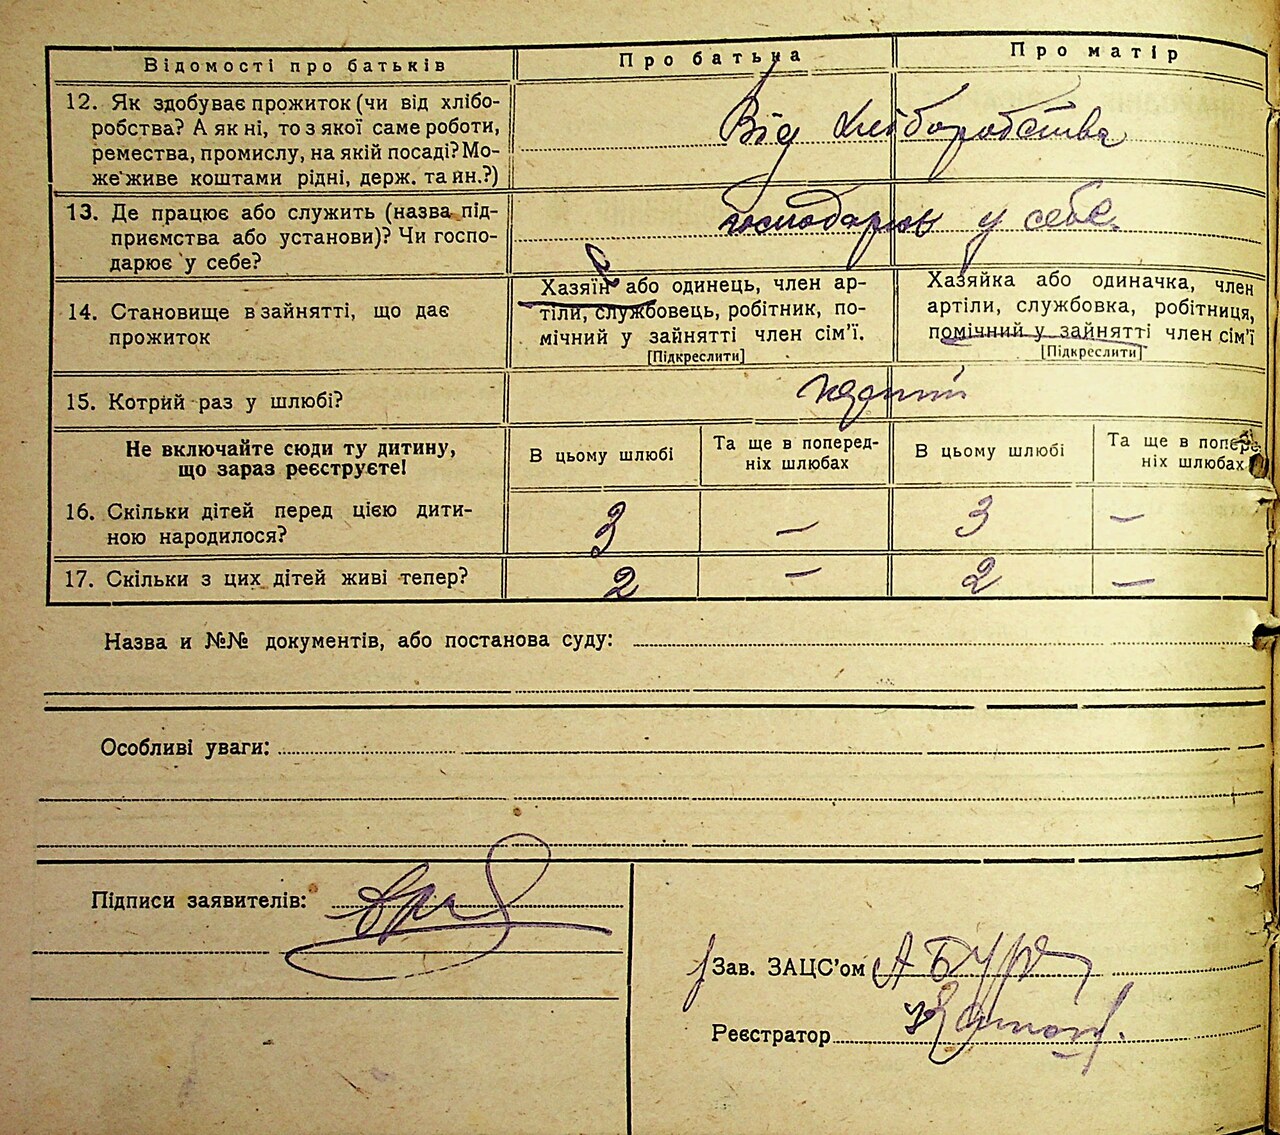 Відомості про батьків
Про батька
Про матір
12. Як здобуває прожиток (чи від хлібо-
робства? А як ні, то з якої саме роботи,
ремества, промислу, на якій посаді? Мо-
же живе коштами рідні, держ. та ин.?)
Від хліборобства
13. Де працює або служить (назва під-
приємства або установи)? Чи госпо-
дарює у себе?
господарює у себе.
14. Становище в зайнятті, що дає
прожиток
Хазяїн або одинець, член ар-
тіли, службовець, робітник, по-
мічний у зайнятті член сім'ї.
[Підкреслити]
Хазяйка або одиначка, член
артіли, службовка, робітниця,
помічний у зайнятті член сім'ї
[Підкреслити]
15. Котрий раз у шлюбі?
Не включайте сюди ту дитину,
що зараз реєструєте!
В цьому шлюбі
Та ще в поперед-
ніх шлюбах
В цьому шлюбі
Та ще в попере
ніх шлюбах
16. Скільки дітей перед цією дити-
ною народилося?
3 — 3 —
17. Скільки з цих дітей живі тепер?
2 — 2 —
Назва и №№ документів, або постанова суду:
Особливі уваги:
Підписи заявителів:
Зав. ЗАЦС'ом
Реєстратор